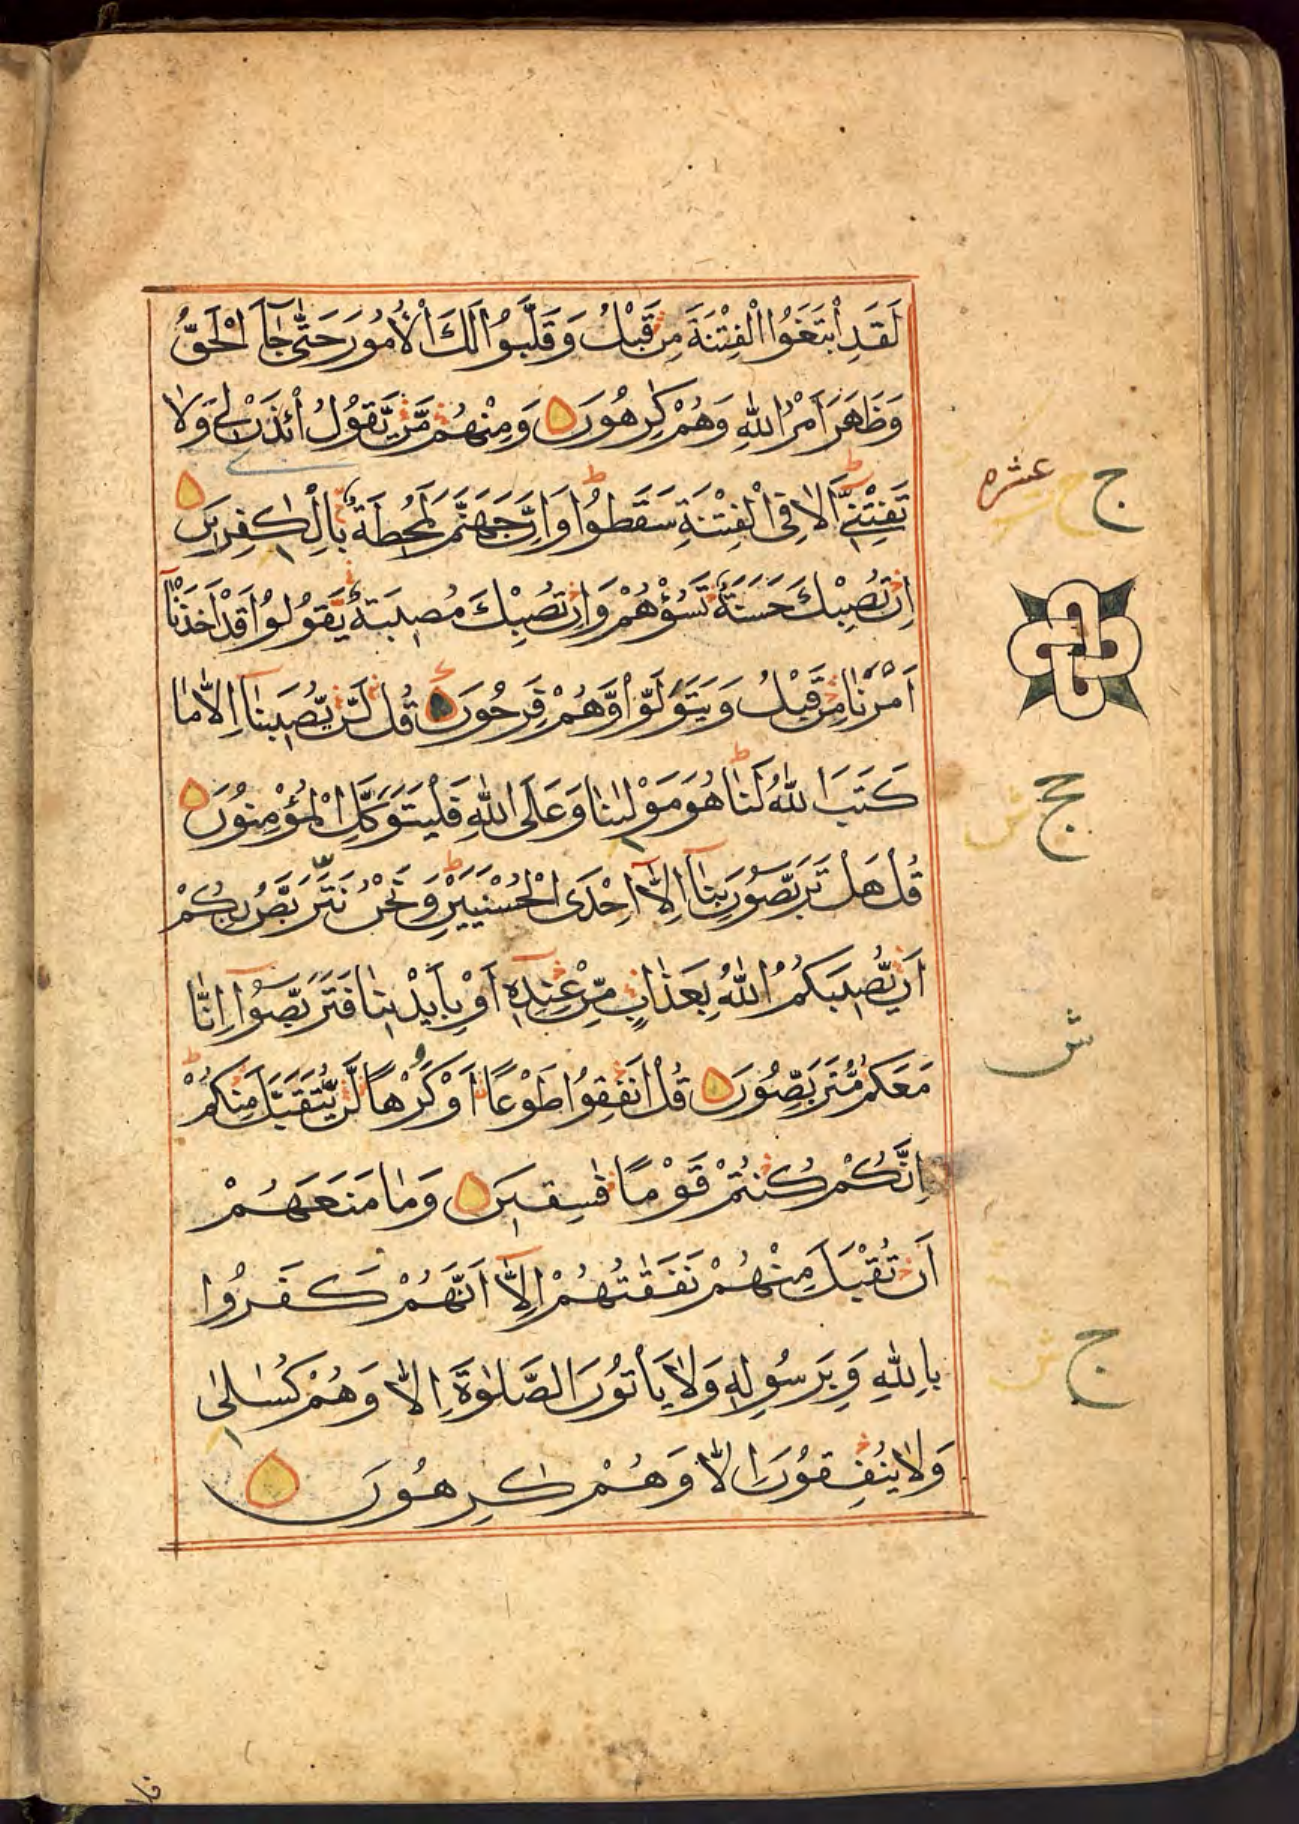 لَقَدِ ابْتَغَوُا الْفِتْنَةَ مِنْ قَبْلُ وَقَلَّبُوا لَكَ الْأُمُورَ حَتّٰى جَآءَ الْحَقُّ
وَظَهَرَ اَمْرُ اللّٰهِ وَهُمْ كٰرِهُونَ وَمِنْهُمْ مَّنْ يَّقُولُ ائْذَنْ لِي وَلَا
تَفْتِنِّي اَلَا فِي الْفِتْنَةِ سَقَطُوا وَاِنَّ جَهَنَّمَ لَمُحِيطَةٌ بِالْكٰفِرِينَ
اِنْ تُصِبْكَ حَسَنَةٌ تَسُؤْهُمْ وَاِنْ تُصِبْكَ مُصِيبَةٌ يَّقُولُوا قَدْ اَخَذْنَآ
اَمْرَنَا مِنْ قَبْلُ وَيَتَوَلَّوْا وَّهُمْ فَرِحُونَ قُلْ لَّنْ يُّصِيبَنَآ اِلَّا مَا
كَتَبَ اللّٰهُ لَنَا هُوَ مَوْلٰىنَا وَعَلَى اللّٰهِ فَلْيَتَوَكَّلِ الْمُؤْمِنُونَ
قُلْ هَلْ تَرَبَّصُونَ بِنَآ اِلَّآ اِحْدَى الْحُسْنَيَيْنِ وَنَحْنُ نَتَرَبَّصُ بِكُمْ
اَنْ يُّصِيبَكُمُ اللّٰهُ بِعَذَابٍ مِّنْ عِنْدِهٖٓ اَوْ بِاَيْدِينَا فَتَرَبَّصُوٓا اِنَّا
مَعَكُمْ مُّتَرَبِّصُونَ قُلْ اَنْفِقُوا طَوْعًا اَوْ كَرْهًا لَّنْ يُّتَقَبَّلَ مِنْكُمْ
اِنَّكُمْ كُنْتُمْ قَوْمًا فٰسِقِينَ وَمَا مَنَعَهُمْ
اَنْ تُقْبَلَ مِنْهُمْ نَفَقٰتُهُمْ اِلَّآ اَنَّهُمْ كَفَرُوا
بِاللّٰهِ وَبِرَسُولِهٖ وَلَا يَأْتُونَ الصَّلٰوةَ اِلَّا وَهُمْ كُسَالٰى
وَلَا يُنْفِقُونَ اِلَّا وَهُمْ كٰرِهُونَ
ج ج عشره
ج ج ش
ش
ج ش
فلا